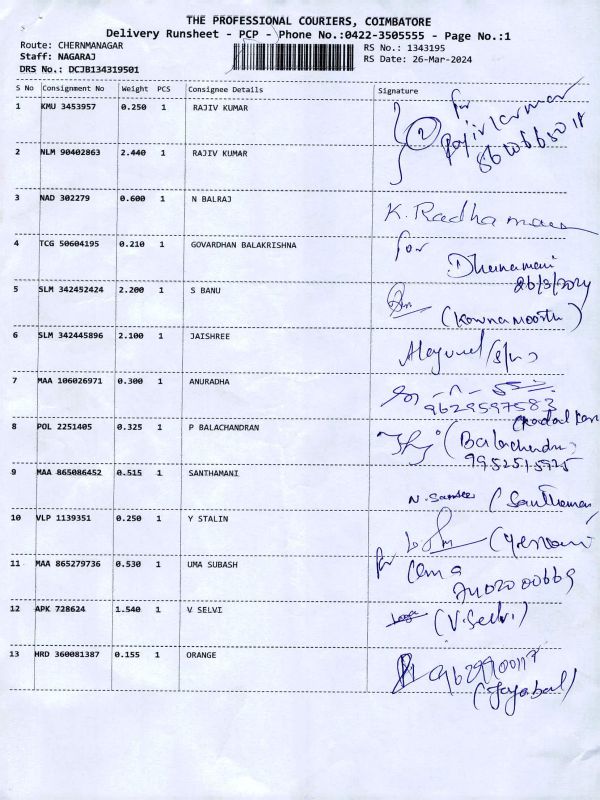 THE PROFESSIONAL COURIERS, COIMBATORE
Delivery Runsheet - PCP - Phone No.:0422-3505555 - Page No.:1
Route: CHERNMANAGAR
Staff: NAGARAJ
DRS No.: DCJB134319501
RS No.: 1343195
RS Date: 26-Mar-2024
S No Consignment No Weight PCS Consignee Details Signature
1 KMU 3453957 0.250 1 RAJIV KUMAR
for
2
2 NLM 90402863 2.440 1 RAJIV KUMAR
3 NAD 302279 0.600 1 N BALRAJ
K. Radha
4 TCG 50604195 0.210 1 GOVARDHAN BALAKRISHNA
for
26/3/2024
5 SLM 342452424 2.200 1 S BANU
6 SLM 342445896 2.100 1 JAISHREE
7 MAA 106026971 0.300 1 ANURADHA
9629597583
8 POL 2251405 0.325 1 P BALACHANDRAN
9952515925
9 MAA 865086452 0.515 1 SANTHAMANI
10 VLP 1139351 0.250 1 Y STALIN
11 MAA 865279736 0.530 1 UMA SUBASH
for
12 APK 728624 1.540 1 V SELVI
(V.Selvi.)
13 HRD 360081387 0.155 1 ORANGE